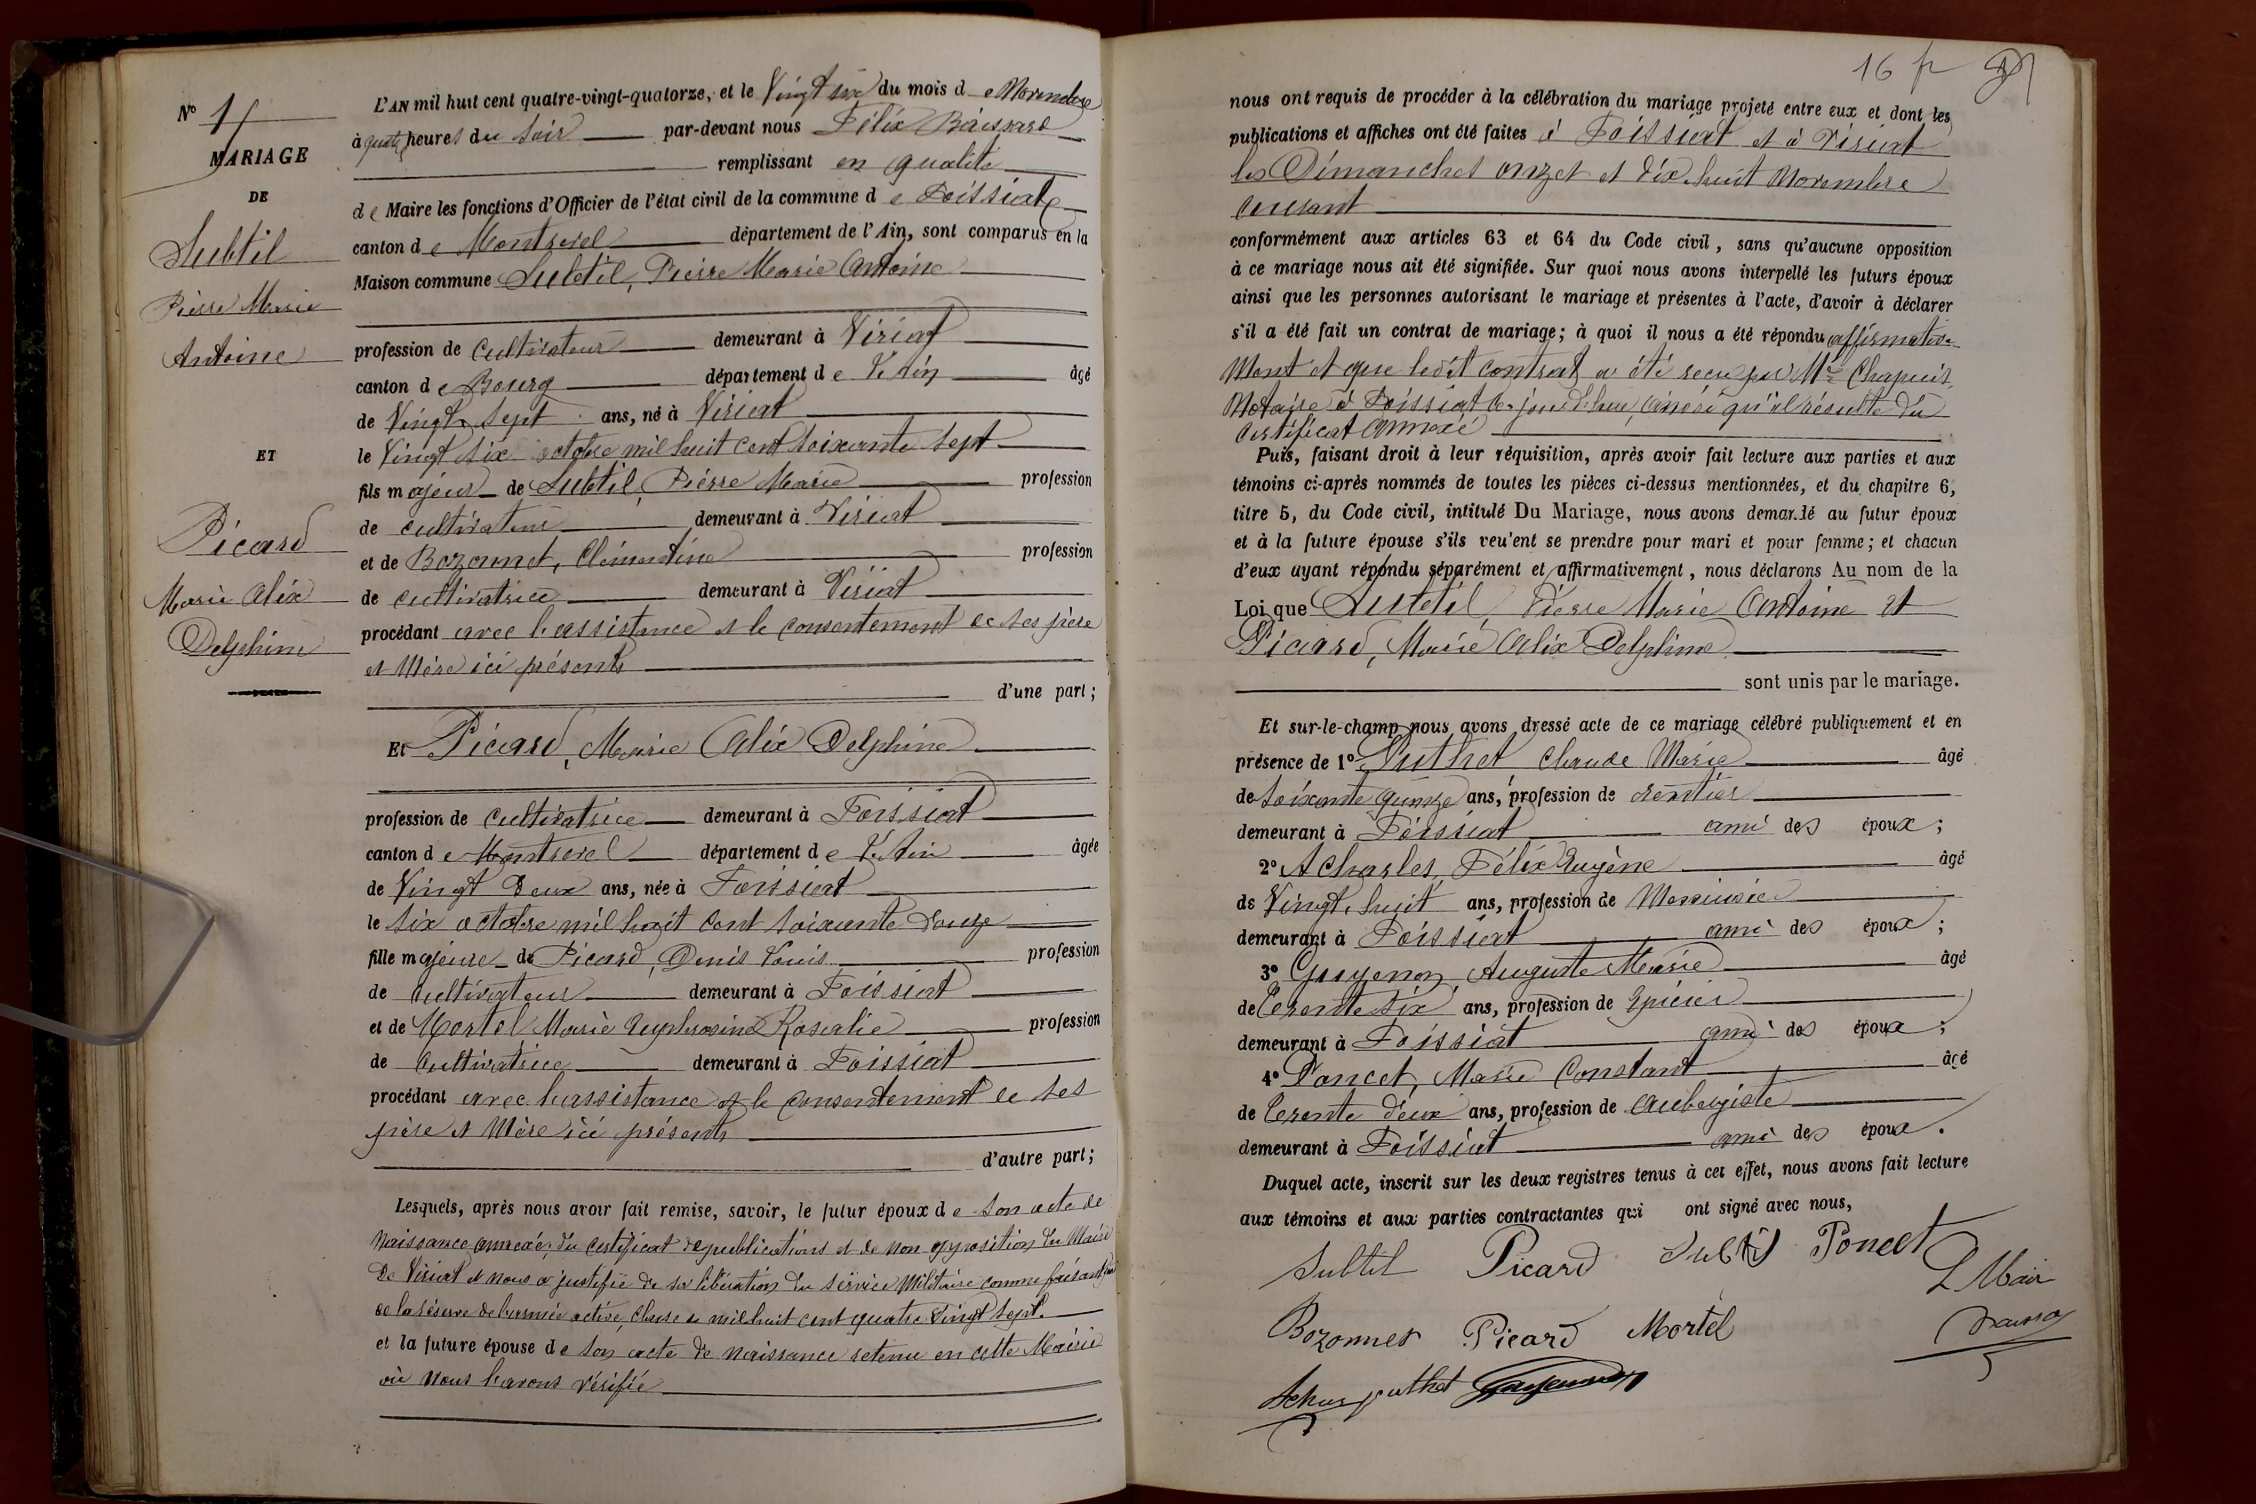 N° 1
MARIAGE
DE
Subtil
Pierre Marie
Antoine
ET
Picard
Marie Alix
Delphine
L'AN mil huit cent quatre-vingt-quatorze, et le Vingt six du mois de Novembre
à quatre heures du soir par-devant nous Félix
remplissant en qualité
de Maire les fonctions d'Officier de l'état civil de la commune de Foissiat
canton de Montrevel département de l'Ain, sont comparus en la
Maison commune Subtil, Pierre Marie Antoine
profession de cultivateur demeurant à Viriat
canton de Bourg département de l'Ain âgé
de Vingt sept ans, né à Viriat
le Vingt six octobre mil huit cent soixante sept
fils majeur de Subtil, Pierre Marie profession
de cultivateur demeurant à Viriat
et de Bozonnet, Clémentine profession
de cultivatrice demeurant à Viriat
procédant avec l'assistance et le consentement de ses père
et Mère ici présents
d'une part;
Et Picard, Marie Alix Delphine
profession de cultivatrice demeurant à Foissiat
canton de Montrevel département de l'Ain âgée
de Vingt Deux ans, née à Foissiat
le six octobre mil huit cent soixante douze
fille majeure de Picard, Denis Louis profession
de cultivateur demeurant à Foissiat
et de Mortel Marie Euphrosine Rosalie profession
de cultivatrice demeurant à Foissiat
procédant avec l'assistance et le consentement de ses
père et Mère ici présents
d'autre part;
Lesquels, après nous avoir fait remise, savoir, le futur époux de son acte de
Naissance annexé, du certificat de publications et de non opposition du Maire
de Viriat et nous a justifié de sa libération du service Militaire comme faisant partie
de la réserve de l'armée active, classe de mil huit cent quatre Vingt sept.
et la future épouse de son acte de naissance retenu en cette Mairie
où nous l'avons vérifié
16 fr
nous ont requis de procéder à la célébration du mariage projeté entre eux et dont les
publications et affiches ont été faites à Foissiat et à Viriat
les Dimanches onze et dix-huit Novembre
courant
conformément aux articles 63 et 64 du Code civil, sans qu'aucune opposition
à ce mariage nous ait été signifiée. Sur quoi nous avons interpellé les futurs époux
ainsi que les personnes autorisant le mariage et présentes à l'acte, d'avoir à déclarer
s'il a été fait un contrat de mariage; à quoi il nous a été répondu affirmative-
Ment et que ledit contrat a été reçu par Me Chapuis
Notaire à Foissiat ce jourd'hui, ainsi qu'il résulte du
certificat annexé
Puis, faisant droit à leur réquisition, après avoir fait lecture aux parties et aux
témoins ci-après nommés de toutes les pièces ci-dessus mentionnées, et du chapitre 6,
titre 5, du Code civil, intitulé Du Mariage, nous avons demandé au futur époux
et à la future épouse s'ils veu'ent se prendre pour mari et pour femme; et chacun
d'eux ayant répondu séparément et affirmativement, nous déclarons Au nom de la
Loi que Subtil, Pierre Marie Antoine et
Picard, Marie Alix Delphine
sont unis par le mariage.
Et sur-le-champ nous avons dressé acte de ce mariage célébré publiquement et en
présence de 1° Puthet Claude Marie âgé
de soixante quinze ans, profession de rentier
demeurant à Foissiat ami des époux;
2° Acharles, Félix Eugène âgé
de Vingt huit ans, profession de Menuisier
demeurant à Foissiat ami des époux;
3° Goyenon, Auguste Marie âgé
de trente six ans, profession de Epicier
demeurant à Foissiat ami des époux;
4° Poncet, Marie Constant âgé
de trente deux ans, profession de aubergiste
demeurant à Foissiat ami des époux.
Duquel acte, inscrit sur les deux registres tenus à cet effet, nous avons fait lecture
aux témoins et aux parties contractantes qui ont signé avec nous,
Subtil Picard Subtil Poncet
L Maire
Bozonnet Picard Mortel
puthet